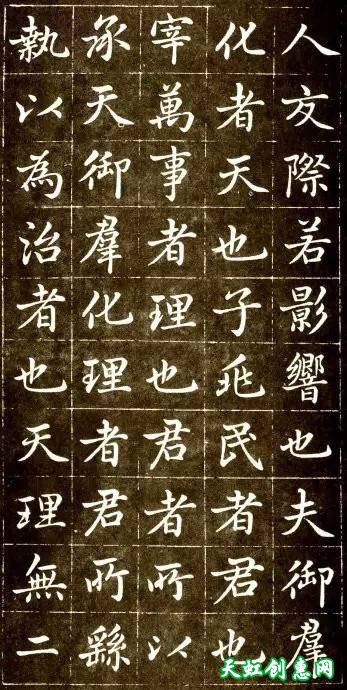 人交際若影響也夫御羣
化者天也子兆民者君也
宰萬事者理也君者所以
承天御羣化理者君所繇
執以為治者也天理無二
天虹创意网